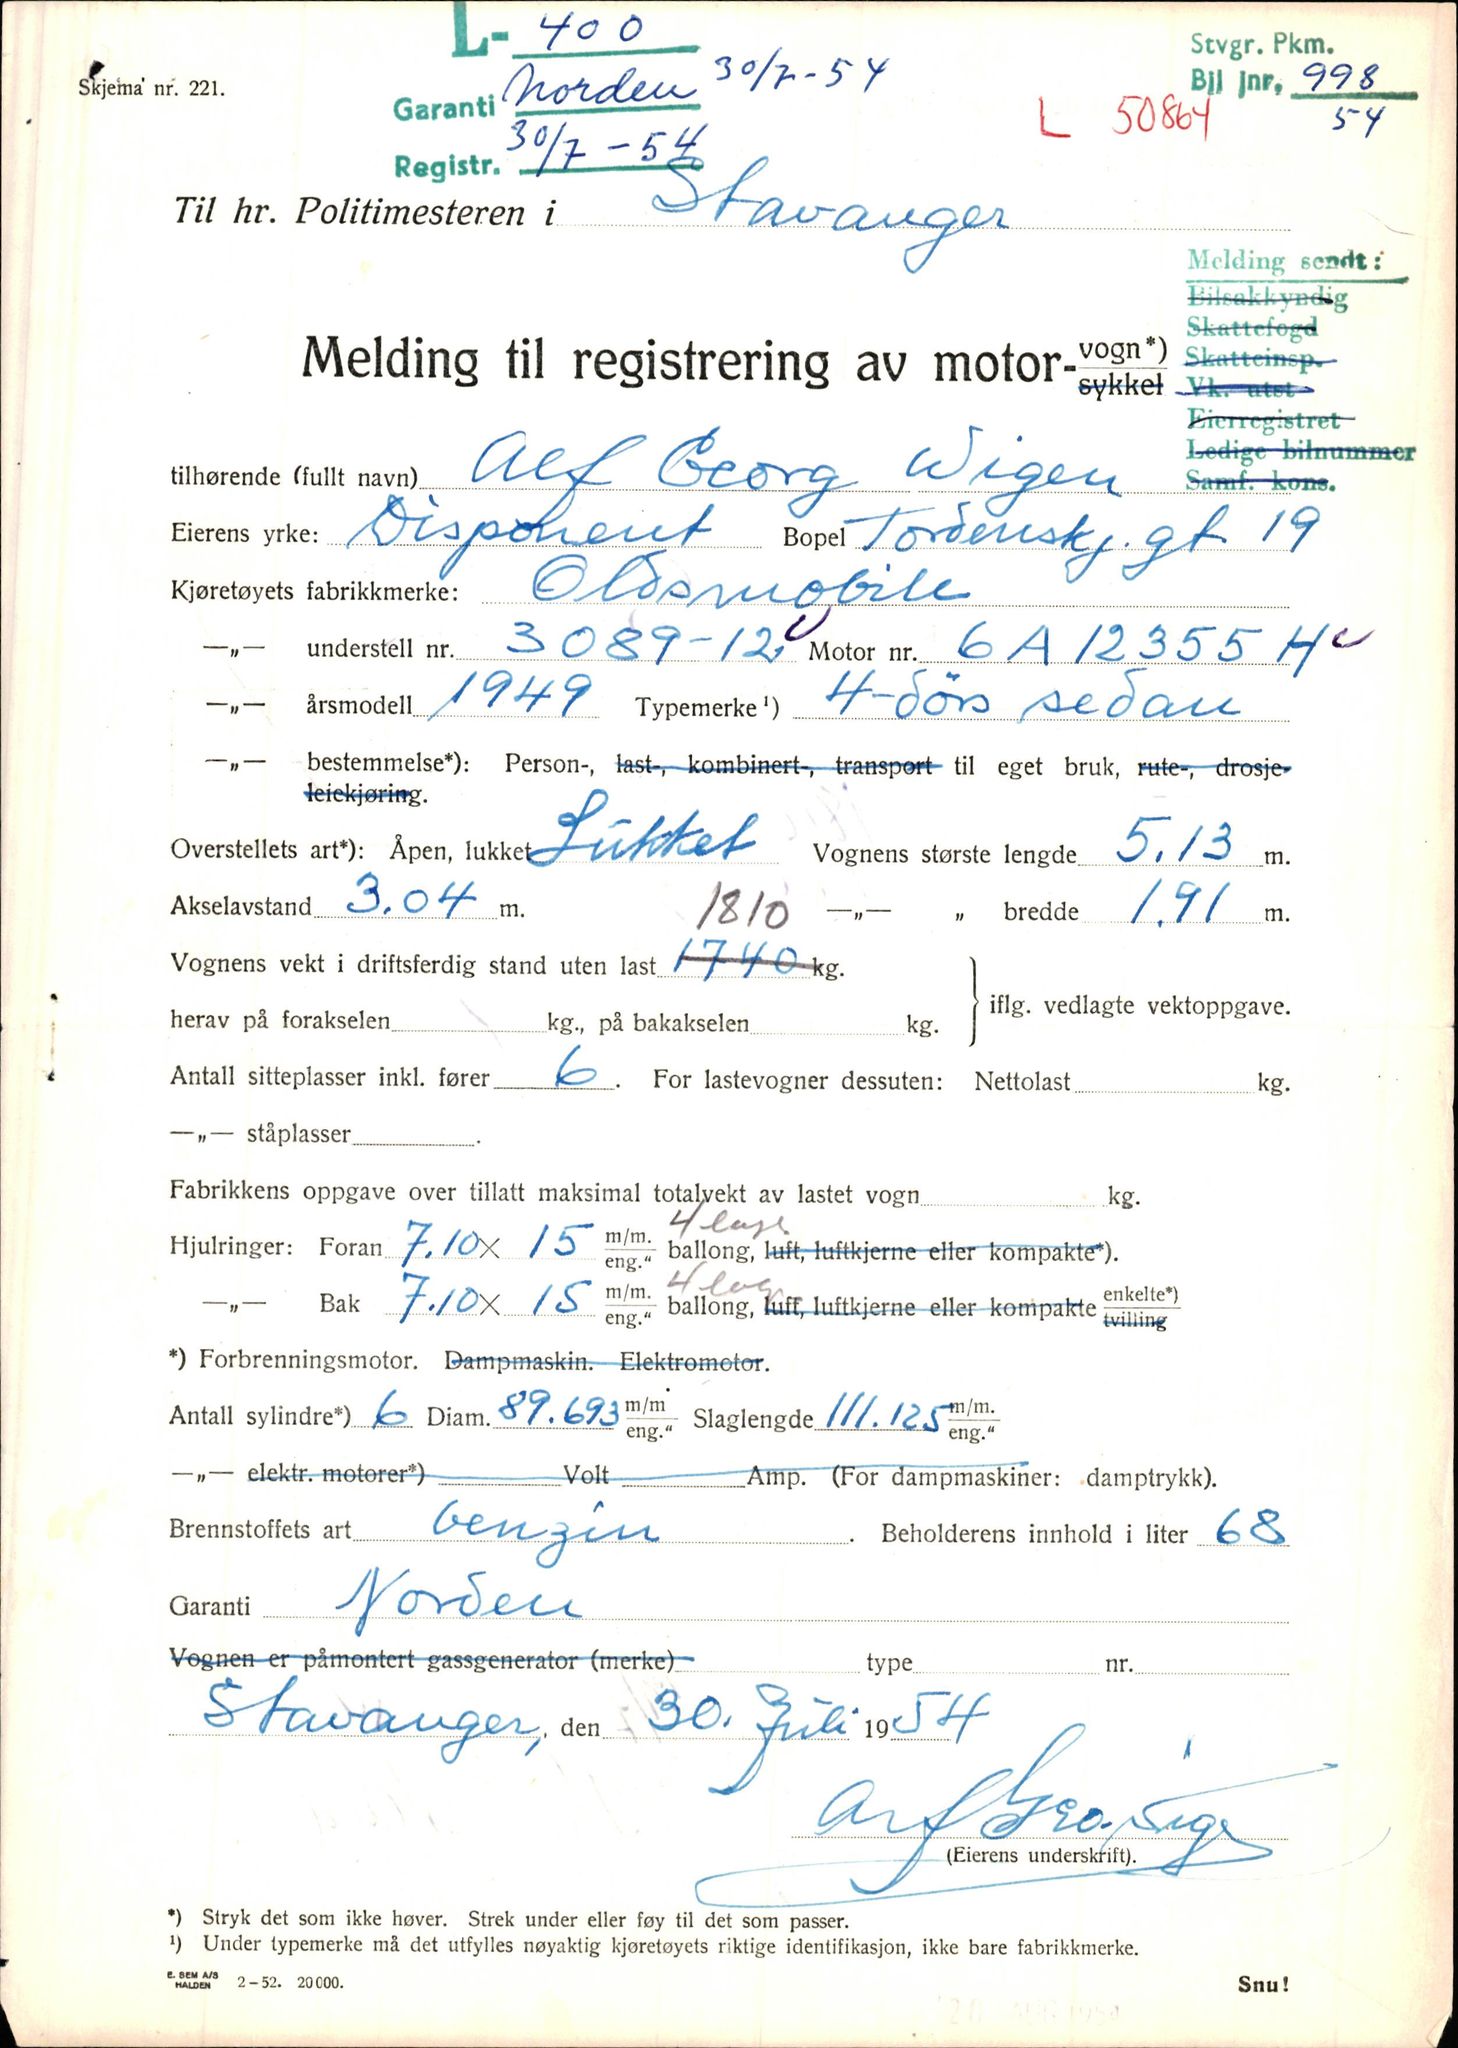 L- 400
Stvgr. Pkm.
Skjema nr. 221.
Garanti Norden 30/7-54
Bil jnr, 998
54
L 50864
Registr. 30/7-54
Til hr. Politimesteren i Stavanger
Melding sendt:
Bilsakkyndig
Skattefogd
Skatteinsp.
Vk. utst
Eierregistret
Ledige bilnummer
Samf. kons.
Melding til registrering av motor-vogn*)
sykkel
tilhørende (fullt navn) Alf Georg Wigen
Eierens yrke: Disponent Bopel Tordenskj. gt. 19
Kjøretøyets fabrikkmerke: Oldsmobile
—„— understell nr. 3089-12 Motor nr. 6 A 12355 H
—„— årsmodell 1949 Typemerke¹) 4-dörs sedan
—„— bestemmelse*): Person-, last-, kombinert-, transport til eget bruk, rute-, drosje-
leiekjøring.
Overstellets art*): Åpen, lukket Lukket Vognens største lengde 5.13 m.
Akselavstand 3.04 m. 1810 —„— „ bredde 1.91 m.
Vognens vekt i driftsferdig stand uten last 1740 kg.
iflg. vedlagte vektoppgave.
herav på forakselen kg., på bakakselen kg.
Antall sitteplasser inkl. fører 6. For lastevogner dessuten: Nettolast kg.
—„— ståplasser .
Fabrikkens oppgave over tillatt maksimal totalvekt av lastet vogn kg.
4
Hjulringer: Foran 7.10 x 15 m/m. eng.“ ballong, luft, luftkjerne eller kompakte*).
4
—„— Bak 7.10 x 15 m/m. eng.“ ballong, luft, luftkjerne eller kompakte enkelte*)
tvilling
*) Forbrenningsmotor. Dampmaskin. Elektromotor.
Antall sylindre*) 6 Diam. 89.693 m/m eng.“ Slaglengde 111.125 m/m. eng.“
—„— elektr. motorer*) Volt Amp. (For dampmaskiner: damptrykk).
Brennstoffets art benzin . Beholderens innhold i liter 68
Garanti Norden
Vognen er påmontert gassgenerator (merke) type nr.
Stavanger, den 30. Juli 1954
(Eierens underskrift).
*) Stryk det som ikke høver. Strek under eller føy til det som passer.
¹) Under typemerke må det utfylles nøyaktig kjøretøyets riktige identifikasjon, ikke bare fabrikkmerke.
E. SEM A/S
HALDEN 2-52. 20000.
Snu!